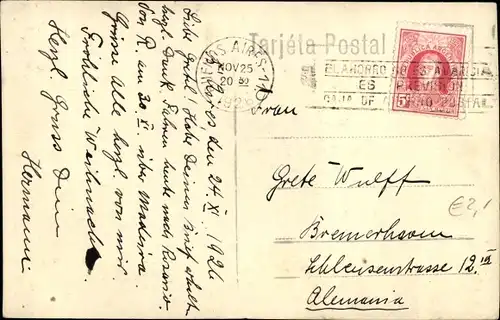 Tarjéta Postal
BUENOS AIRES
NOV 25
20
1926
EL AHORRO NO ES AVARICIA
ES PREVISION
CAJA DE AHORRO POSTAL
5
B. Aires, den 24. XI. 1926
Liebe Gretel! Habe Deinen Brief erhalt.
hzgl. Dank. Fahren heute nach Rosario
von R. am 30. XI. über Madeira.
Grüsse alle herzl. von mir.
Fröhliche Weihnacht
Herzl. Gruss Dein
Hermann
Frau
Grete Wulff
Bremerhaven
Schleusenstrasse 12 III
Alemania
€2,-